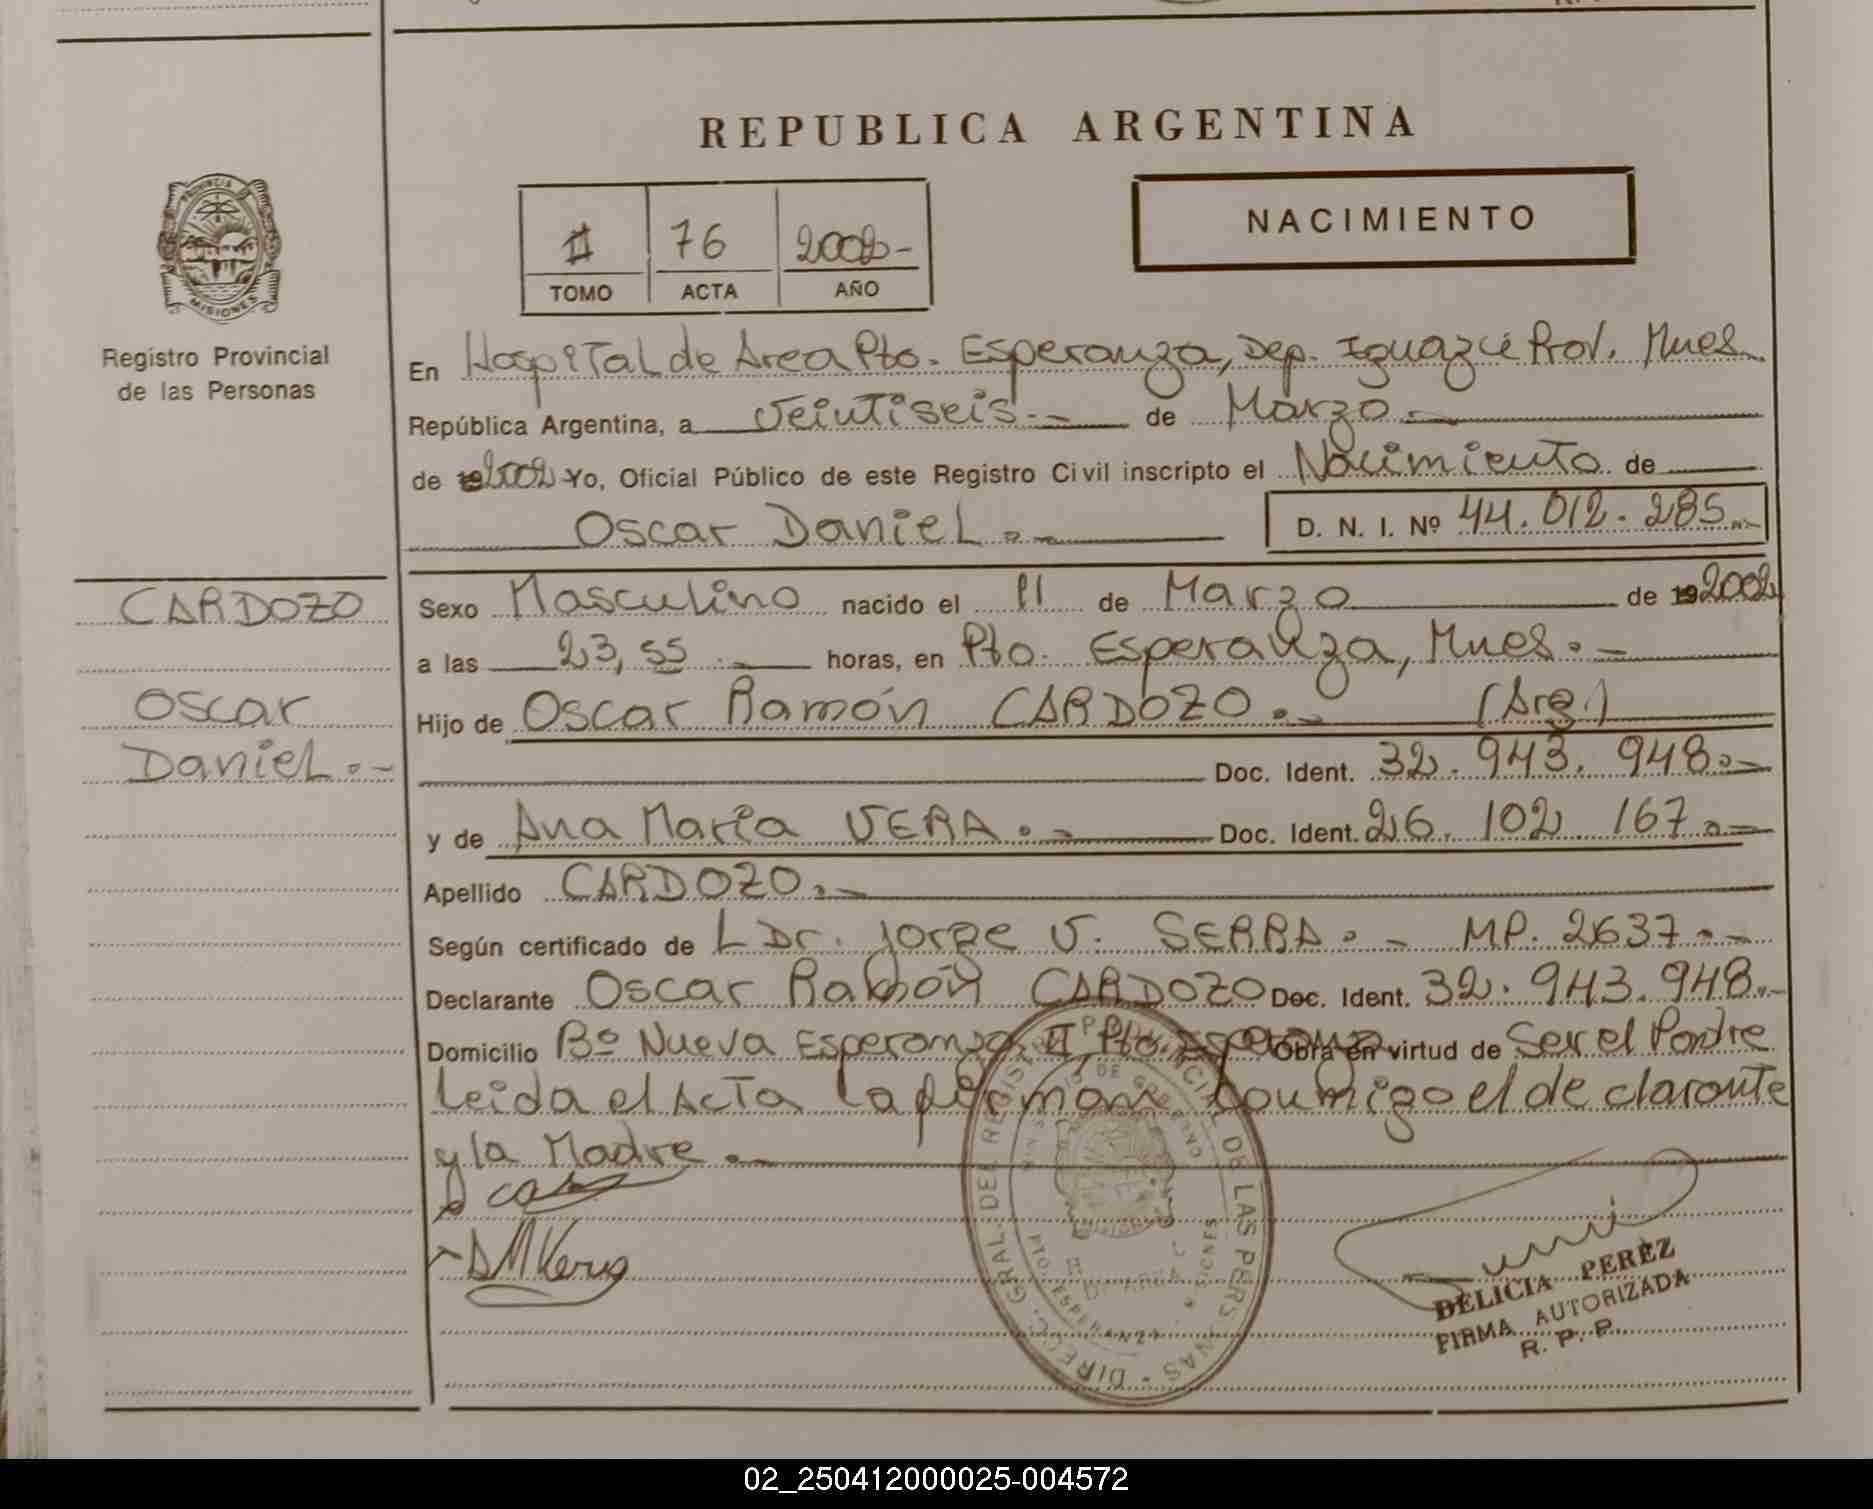 REPUBLICA ARGENTINA
PROVINCIA DE
MISIONES
Registro Provincial
de las Personas
76 2002-
TOMO ACTA AÑO
NACIMIENTO
En Hospital de Area Pto. Esperanza, Dep. Iguazú Prov. Mnes.
República Argentina, a veintiseis.- de Marzo.-
de 192002 Yo, Oficial Público de este Registro Civil inscripto el Nacimiento de
Oscar Daniel.- D. N. I. Nº 44.012.285.-
CARDOZO
Oscar
Daniel.-
Sexo Masculino nacido el 11 de Marzo de 192002
a las 23,55.- horas, en Pto. Esperanza, Mnes.-
Hijo de Oscar Ramón CARDOZO.- (Arg.)
Doc. Ident. 32.943.948.-
y de Ana María VERA.- Doc. Ident. 26.102.167.-
Apellido CARDOZO.-
Según certificado de Dr. Jorge V. SERRA.- MP. 2637.-
Declarante Oscar Ramón CARDOZO Doc. Ident. 32.943.948.-
Domicilio Bº Nueva Esperanza II, Pto. Esperanza Obra en virtud de Ser el Padre
leida el Acta la firman conmigo el declarante
y la Madre.-
AMVera
DIRECC. GRAL. DEL REGISTRO PROVINCIAL DE LAS PERSONAS
MINISTERIO DE GOBIERNO
PTO. ESPERANZA - MISIONES
DELICIA PEREZ
FIRMA AUTORIZADA
R. P. P.
02_250412000025-004572